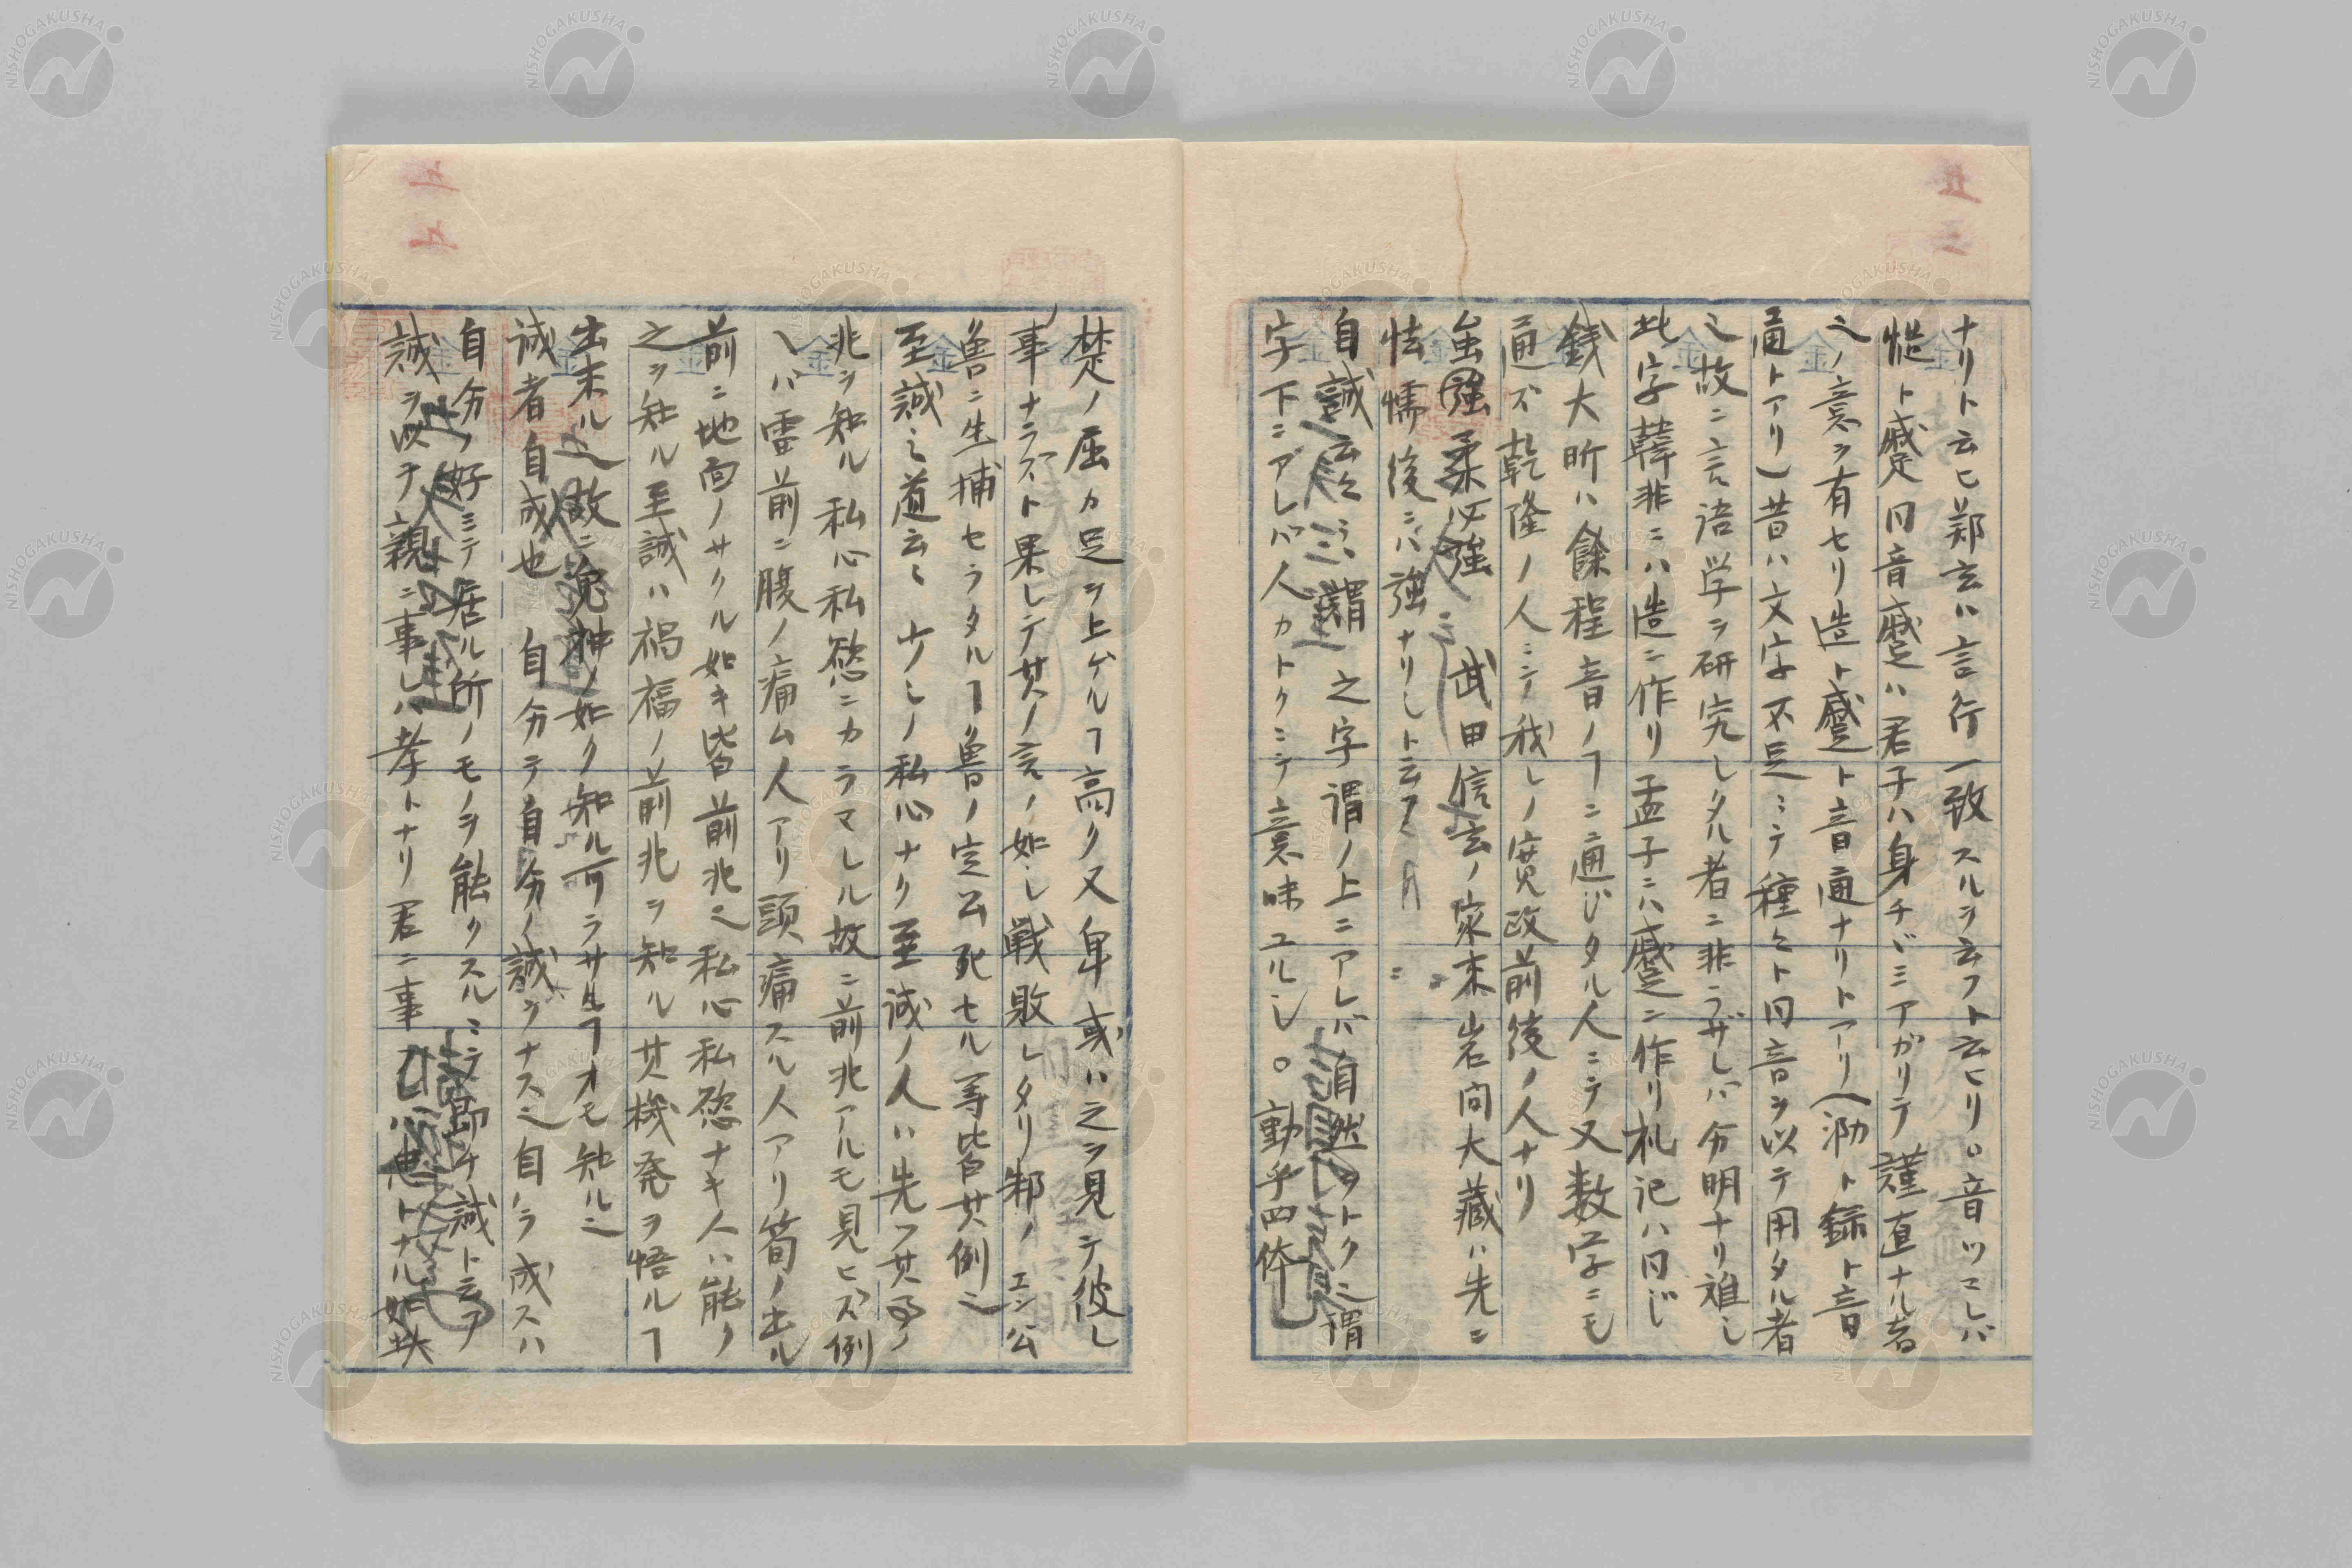 ナリト云ヒ鄭玄ハ言行一致スルヲ云フト云ヒリ。音ツマレバ
慥ト蹙同音蹙ハ君子ハ身チヾミアガリテ謹直ナル者
之ノ意ヲ有セリ造ト蹙ト音通ナリトアリ(泐ト録ト音
通トアリ)昔ハ文字不足ミテ種々ト同音ヲ以テ用タル者
之故ニ言語学ヲ研究シタル者ニ非ラザレバ分明ナリ難シ
此字韓非ニハ造ニ作リ孟子ニハ蹙ニ作リ札記ハ同じ
銭大昕ハ餘程音ノヿニ通ジタル人ニテ又数学ニモ
通ズ乾隆ノ人ニテ我レノ寛政前後ノ人ナリ
虽強柔必強 武田信玄ノ家来岩向大蔵ハ先ニ
怯懦後ニハ強ナリシト云フ
自誠云々 謂之字謂ノ上ニアレバ自然ヲトク之謂
字下ニアレバ人カトクニテ意味ユルシ。動乎四体
楚ノ屈カ足ヲ上ゲルヿ高ク又卑或ハ之ヲ見テ彼レ
事ナラズト果シテ其ノ言ノ如シ戦敗レタリ邾ノエン公
魯ニ生捕セラタルヿ魯ノ定公死セル等皆其例之
至誠之道云々 少シノ私心ナク至誠ノ人ハ先ヅ其ノ
兆ヲ知ル私心私慾ニカラマレル故ニ前兆アルモ見ヒズ例
ヘバ雪前ニ腹ノ痛ム人アリ頭痛スル人アリ筍ノ出ル
前ニ地面ノサクル如キ皆前兆之私心私慾ナキ人ハ能ク
之ヲ知ル至誠ハ禍福ノ前兆ヲ知ル其機発ヲ悟ルヿ
出来ル之故ニ鬼神ノ如ク知ル可ラサルヿオモ知ル之
誠者自成也 自分テ自分ノ誠ヲナス之自ラ成スハ
自分ノ好ミテ居ル所ノモノヲ能クスルミテ即チ誠ト云フ
誠ヲ以テ親ニ事レハ孝トナリ君ニ事ハ忠トナル如共